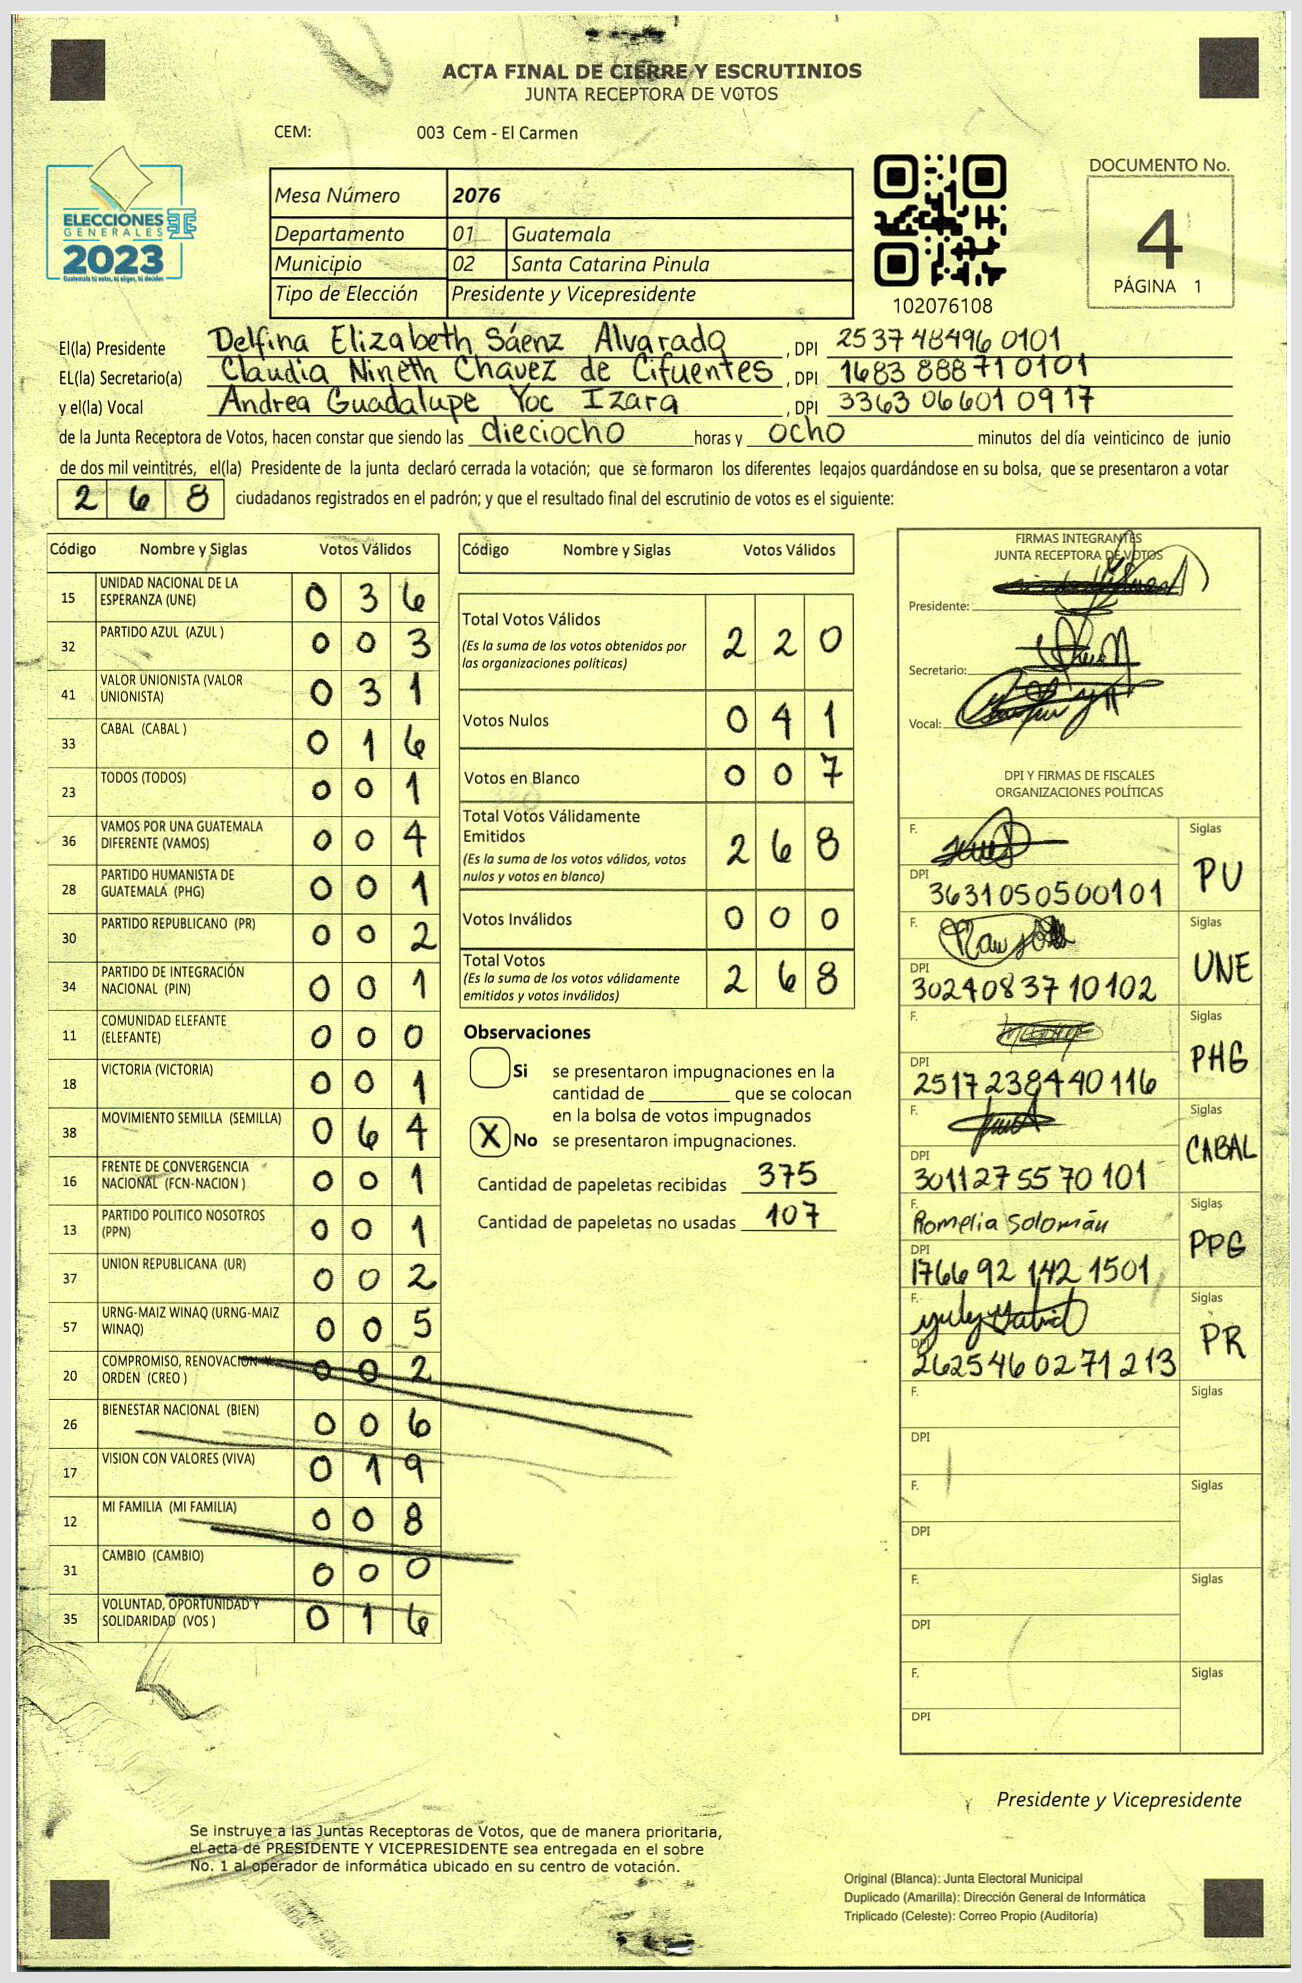 ACTA FINAL DE CIERRE Y ESCRUTINIOS
JUNTA RECEPTORA DE VOTOS
CEM: 003 Cem - El Carmen
ELECCIONES
GENERALES
2023
Guatemala tú votas, tú eliges, tú decides
Mesa Número 2076
Departamento 01 Guatemala
Municipio 02 Santa Catarina Pinula
Tipo de Elección Presidente y Vicepresidente
102076108
DOCUMENTO No.
4
PÁGINA 1
El(la) Presidente Delfina Elizabeth Sáenz Alvarado, DPI 2537 48496 0101
EL(la) Secretario(a) Claudia Nineth Chavez de Cifuentes, DPI 1683 88871 0101
y el(la) Vocal Andrea Guadalupe Yoc Izara, DPI 3363 06601 0917
de la Junta Receptora de Votos, hacen constar que siendo las dieciocho horas y ocho minutos del día veinticinco de junio
de dos mil veintitrés, el(la) Presidente de la junta declaró cerrada la votación; que se formaron los diferentes legajos guardándose en su bolsa, que se presentaron a votar
2 6 8 ciudadanos registrados en el padrón; y que el resultado final del escrutinio de votos es el siguiente:
Código Nombre y Siglas Votos Válidos
15 UNIDAD NACIONAL DE LA ESPERANZA (UNE) 0 3 6
32 PARTIDO AZUL (AZUL ) 0 0 3
41 VALOR UNIONISTA (VALOR UNIONISTA) 0 3 1
33 CABAL (CABAL ) 0 1 6
23 TODOS (TODOS) 0 0 1
36 VAMOS POR UNA GUATEMALA DIFERENTE (VAMOS) 0 0 4
28 PARTIDO HUMANISTA DE GUATEMALA (PHG) 0 0 1
30 PARTIDO REPUBLICANO (PR) 0 0 2
34 PARTIDO DE INTEGRACIÓN NACIONAL (PIN) 0 0 1
11 COMUNIDAD ELEFANTE (ELEFANTE) 0 0 0
18 VICTORIA (VICTORIA) 0 0 1
38 MOVIMIENTO SEMILLA (SEMILLA) 0 6 4
16 FRENTE DE CONVERGENCIA NACIONAL (FCN-NACION ) 0 0 1
13 PARTIDO POLITICO NOSOTROS (PPN) 0 0 1
37 UNION REPUBLICANA (UR) 0 0 2
57 URNG-MAIZ WINAQ (URNG-MAIZ WINAQ) 0 0 5
20 COMPROMISO, RENOVACION Y ORDEN (CREO ) 0 0 2
26 BIENESTAR NACIONAL (BIEN) 0 0 6
17 VISION CON VALORES (VIVA) 0 1 9
12 MI FAMILIA (MI FAMILIA) 0 0 8
31 CAMBIO (CAMBIO) 0 0 0
35 VOLUNTAD, OPORTUNIDAD Y SOLIDARIDAD (VOS ) 0 1 6
Código Nombre y Siglas Votos Válidos
Total Votos Válidos 2 2 0
(Es la suma de los votos obtenidos por
las organizaciones políticas)
Votos Nulos 0 4 1
Votos en Blanco 0 0 7
Total Votos Válidamente
Emitidos 2 6 8
(Es la suma de los votos válidos, votos
nulos y votos en blanco)
Votos Inválidos 0 0 0
Total Votos 2 6 8
(Es la suma de los votos válidamente
emitidos y votos inválidos)
Observaciones
Si se presentaron impugnaciones en la
cantidad de ________ que se colocan
en la bolsa de votos impugnados
X No se presentaron impugnaciones.
Cantidad de papeletas recibidas 375
Cantidad de papeletas no usadas 107
FIRMAS INTEGRANTES
JUNTA RECEPTORA DE VOTOS
Presidente:
Secretario:
Vocal:
DPI Y FIRMAS DE FISCALES
ORGANIZACIONES POLÍTICAS
F. Siglas
DPI 3631050500101 PU
F. Siglas
DPI 3024083710102 UNE
F. Siglas
DPI 2517238440116 PHG
F. Siglas
DPI 3011275570101 CABAL
F. Romelia Solomán Siglas
DPI 1766 92 142 1501 PPG
F. Siglas
DPI 2625460271213 PR
F. Siglas
DPI
F. Siglas
DPI
F. Siglas
DPI
F. Siglas
DPI
Presidente y Vicepresidente
Se instruye a las Juntas Receptoras de Votos, que de manera prioritaria,
el acta de PRESIDENTE Y VICEPRESIDENTE sea entregada en el sobre
No. 1 al operador de informática ubicado en su centro de votación.
Original (Blanca): Junta Electoral Municipal
Duplicado (Amarilla): Dirección General de Informática
Triplicado (Celeste): Correo Propio (Auditoría)